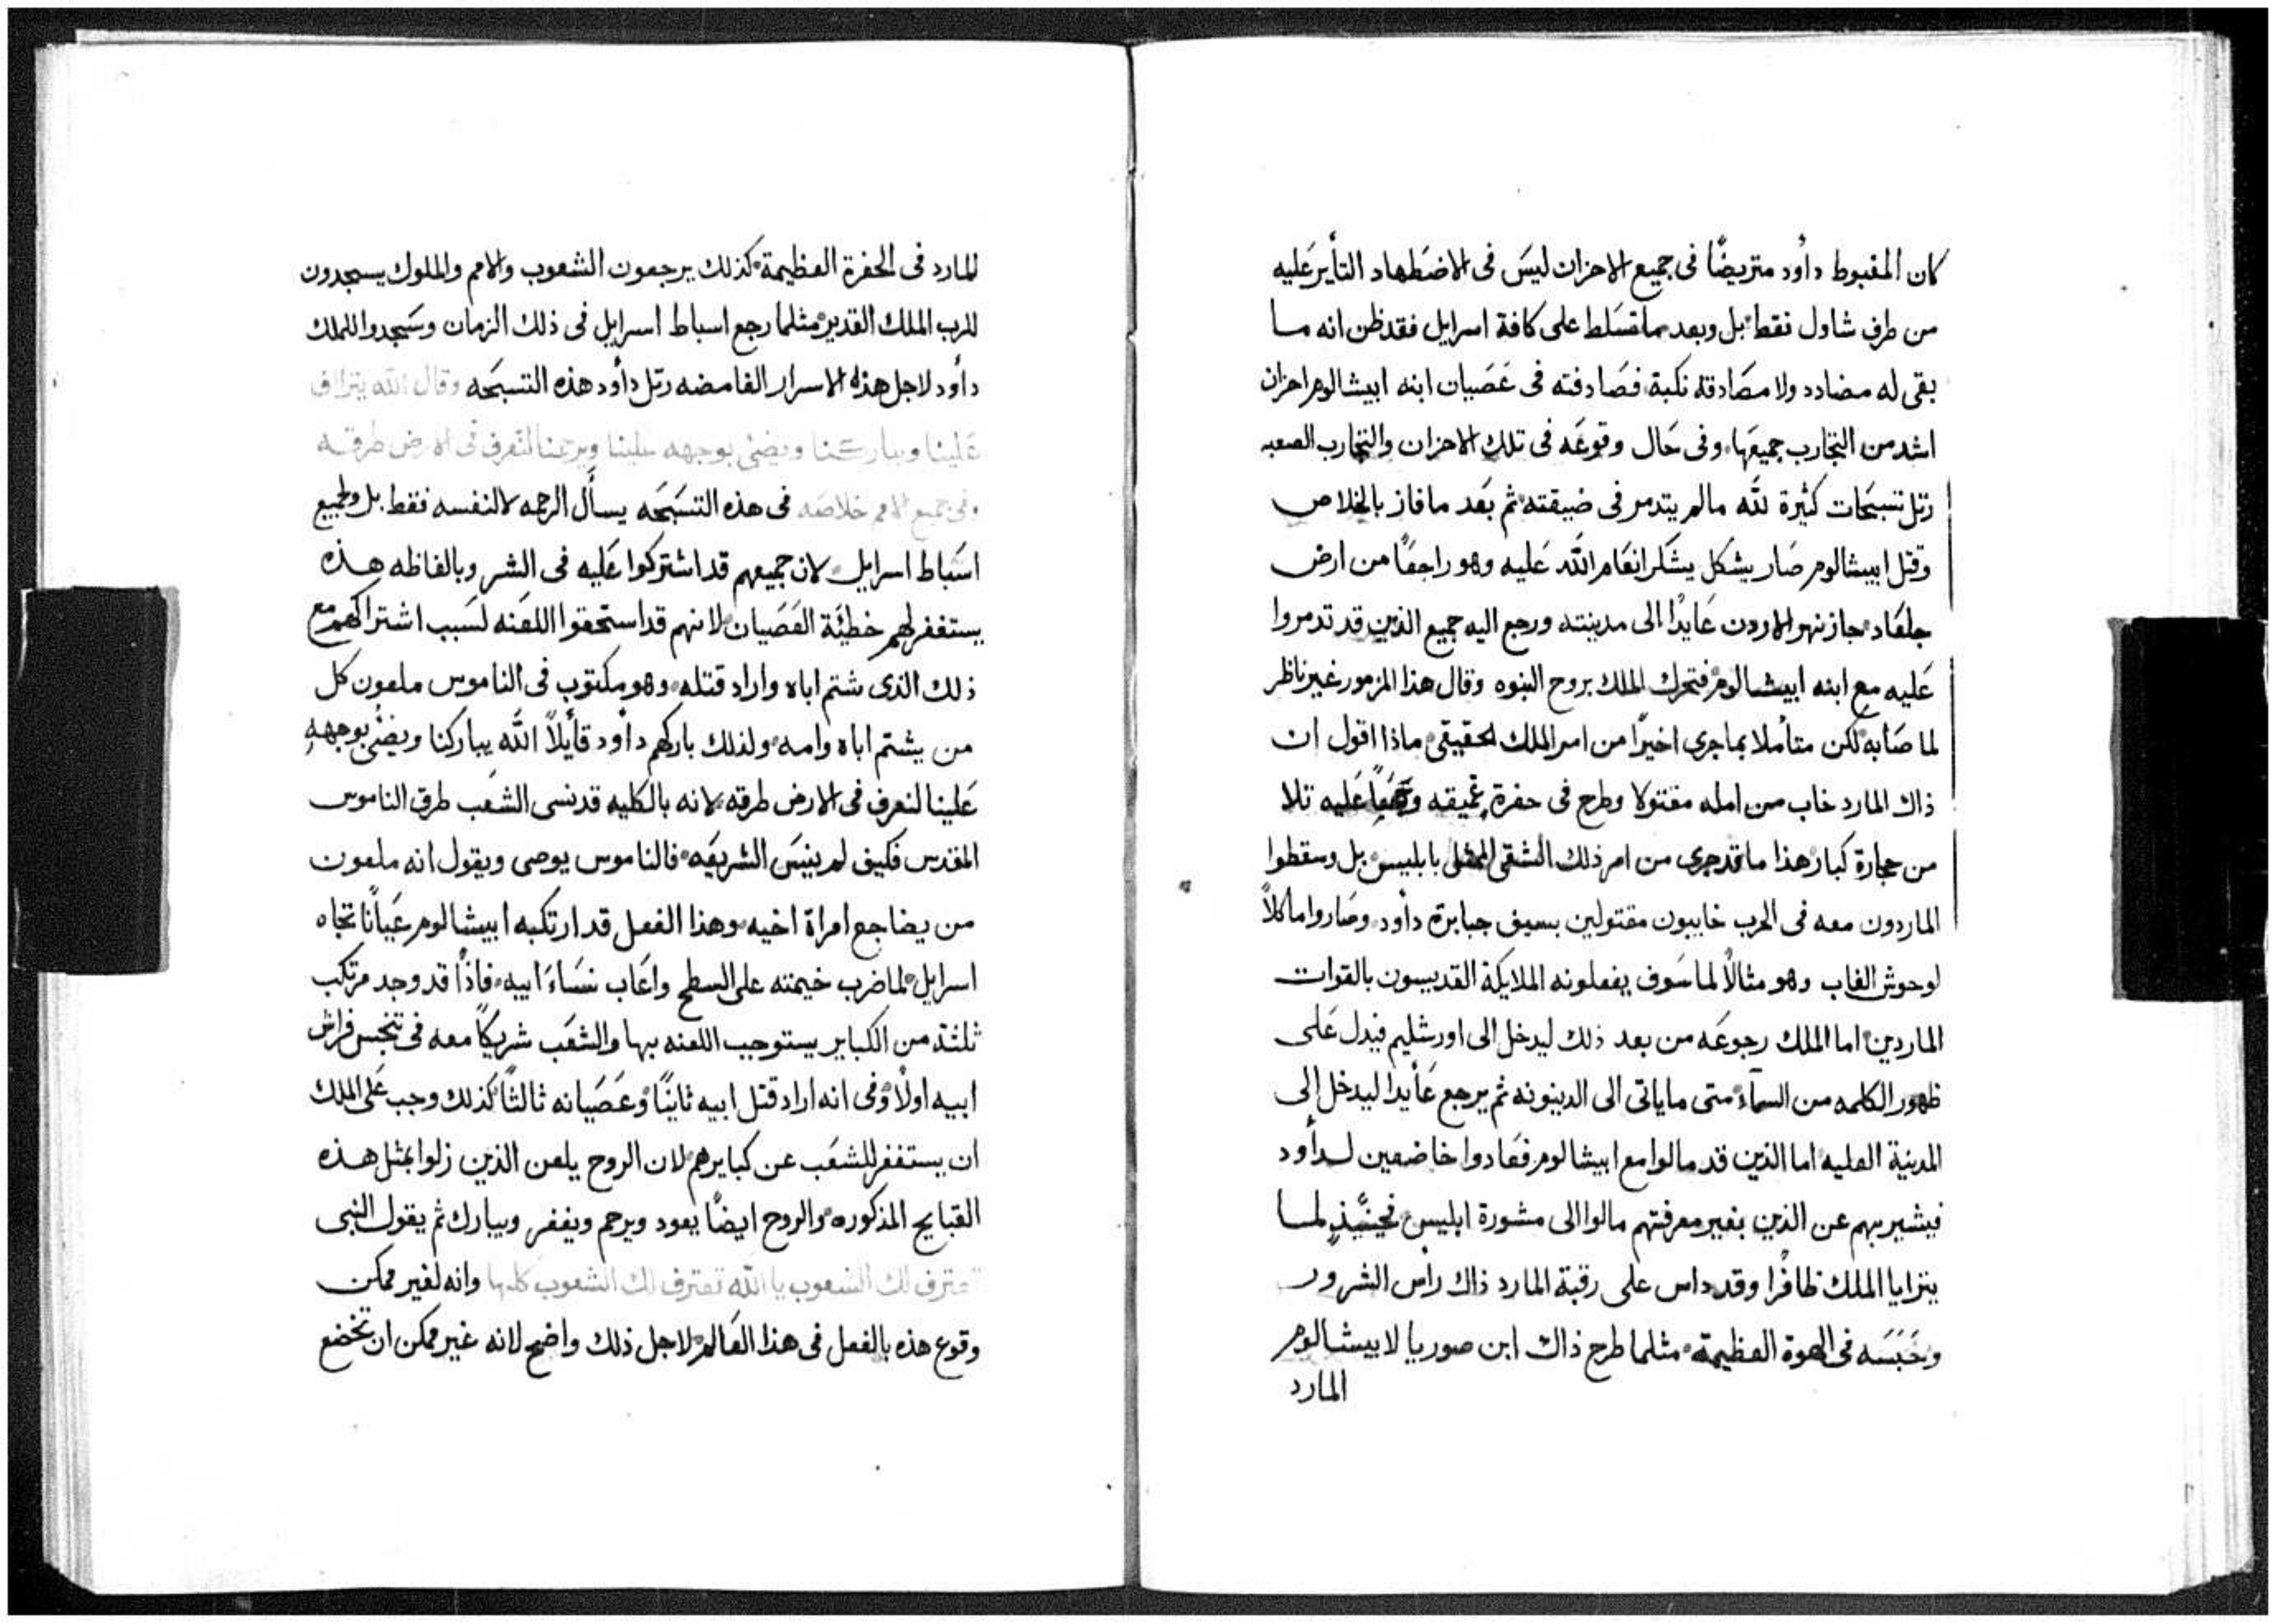 كان المغبوط داود متريضًا فى جميع الاحزان ليسَ فى الاضطهاد التأير عَليه
من طرف شاول فقط بل وبعد ما تسَلط على كافة اسرايل فقد ظن انه مـا
بقى له مضادد ولا مصَادقته نكبة، فصَادفته فى عَصَيان ابنه ابيشالوم احزان
اشد من التجارب جميعَها، وفى حَال وقوعَه فى تلك الاحزان والتجارب الصعبه
رتل تسبَحَات كثيرة للّه مالم يتدمر فى ضيقته ثم بَعد ما فاز بالخلاص
وقتل ابيشالوم صَار بشكل يشكر انعَام اللّه عَليه وهو راجعًا من ارض
جلعَاد جاز نهر الاردن عَايدًا الى مدينته ورجع اليه جميع الذين قد تدمروا
عَليه مع ابنه ابيشالوم فتحرك الملك بروح النبوه وقال هذا المزمور غير ناظر
لما صَابه لكن متأملا بما جرى اخيرًا من امر الملك الحقيقى ماذا اقول ان
ذاك المارد خاب من امله مقتولا وطرح فى حفرة عَميقه عَليه تلا
من حجارة كبار هذا ما قد جرى من امر ذلك الشقى الممثل بابليس بل وسقطوا
الماردون معه فى الحرب خايبون مقتولين بسيف جبابرة داود وصَاروا ماكلاً
لوحوش الغاب وهو مثالاً لما سَوف يفعلونه الملايكة القديسون بالقوات
الماردين اما الملك رجوعَه من بعد ذلك ليدخل الى اورشليم فيدل عَلى
ظهور الكلمه من السمآء متى ما ياتى الى الدينونه ثم يرجع عَأيدا ليدخل الى
المدينة العليه اما الذين قد مالوا مع ابيشالوم فعَادوا خاضعين لـدأود
فيشير بهم عن الذين بغير معرفتهم مالوا الى مشورة ابليس فحينَيذٍ لمـا
يتزايا الملك ظافرًا وقد داس على رقبة المارد ذاك رأس الشرور
وحَبَسَه فى الهوة العظيمة مثلما طرح ذاك ابن صوريا لابيشالوم
المارد
المارد فى الحفرة العظيمة كذلك يرجعون الشعوب والامم والملوك يسجدون
للرب الملك القدير مثلما رجع اسباط اسرايل فى ذلك الزمان وسَجدوا للملك
دأود لاجل هذه الاسرار الغامضه رتل دأود هذه التسبحَه وقال اللّه يتراف
عَلينا ويباركنا ويضئ بوجهه علينا ويرحمنا لنعرف فى الارض طرقه
وفى جميع الامم خلاصَه فى هذه التسَبحَه يسأل الرحمه لا لنفسه فقط بل ولجميع
اسَباط اسرايل لان جميعهم قد اشتركوا عَليه فى الشر وبالفاظه هـذه
يستغفر لهم خطيَة العَصَيان لانهم قد استحقوا اللعَنه لسَبب اشتراكهم مع
ذلك الذى شتم اباه واراد قتله وهو مكتوب فى الناموس ملعون كل
من يشتم اباه وامه ولذلك باركهم دأود قأيلاً اللّه يباركنا ويضئ بوجهه
عَلينا لنعرف فى الارض طرقه لانه بالكليه قد نسى الشعَب طرق الناموس
المقدس فكيف لم ينسَ الشريعَه فالناموس يوصى ويقول انه ملعون
من يضاجع امراة اخيه وهذا الفعل قد ارتكبه ابيشالوم عَيانًا تجاه
اسرايل لما ضرب خيمته على السطح واعَاب نسَاءَ ابيه، فاذًا قد وجد مرتكب
ثلثة من الكباير يستوجب اللعنه بها والشعَب شريكًا معه فى تنجس فراش
ابيه اولاً وفى انه اراد قتل ابيه ثانيًا وعَصَيانه ثالثًا كذلك وجب عَلى الملك
ان يستغفر للشعَب عن كبايرهم لان الروح يلعن الذين زلوا بمثل هـذه
القبايح المذكوره والروح ايضًا يعود ويرحم ويغفر ويبارك ثم يقول النبى
تعترف لك الشعوب يا اللّه تعترف لك الشعوب كلها وانه لغير ممكن
وقوع هذه بالفعل فى هذا العَالم لاجل ذلك واضح لانه غير ممكن ان تخضع